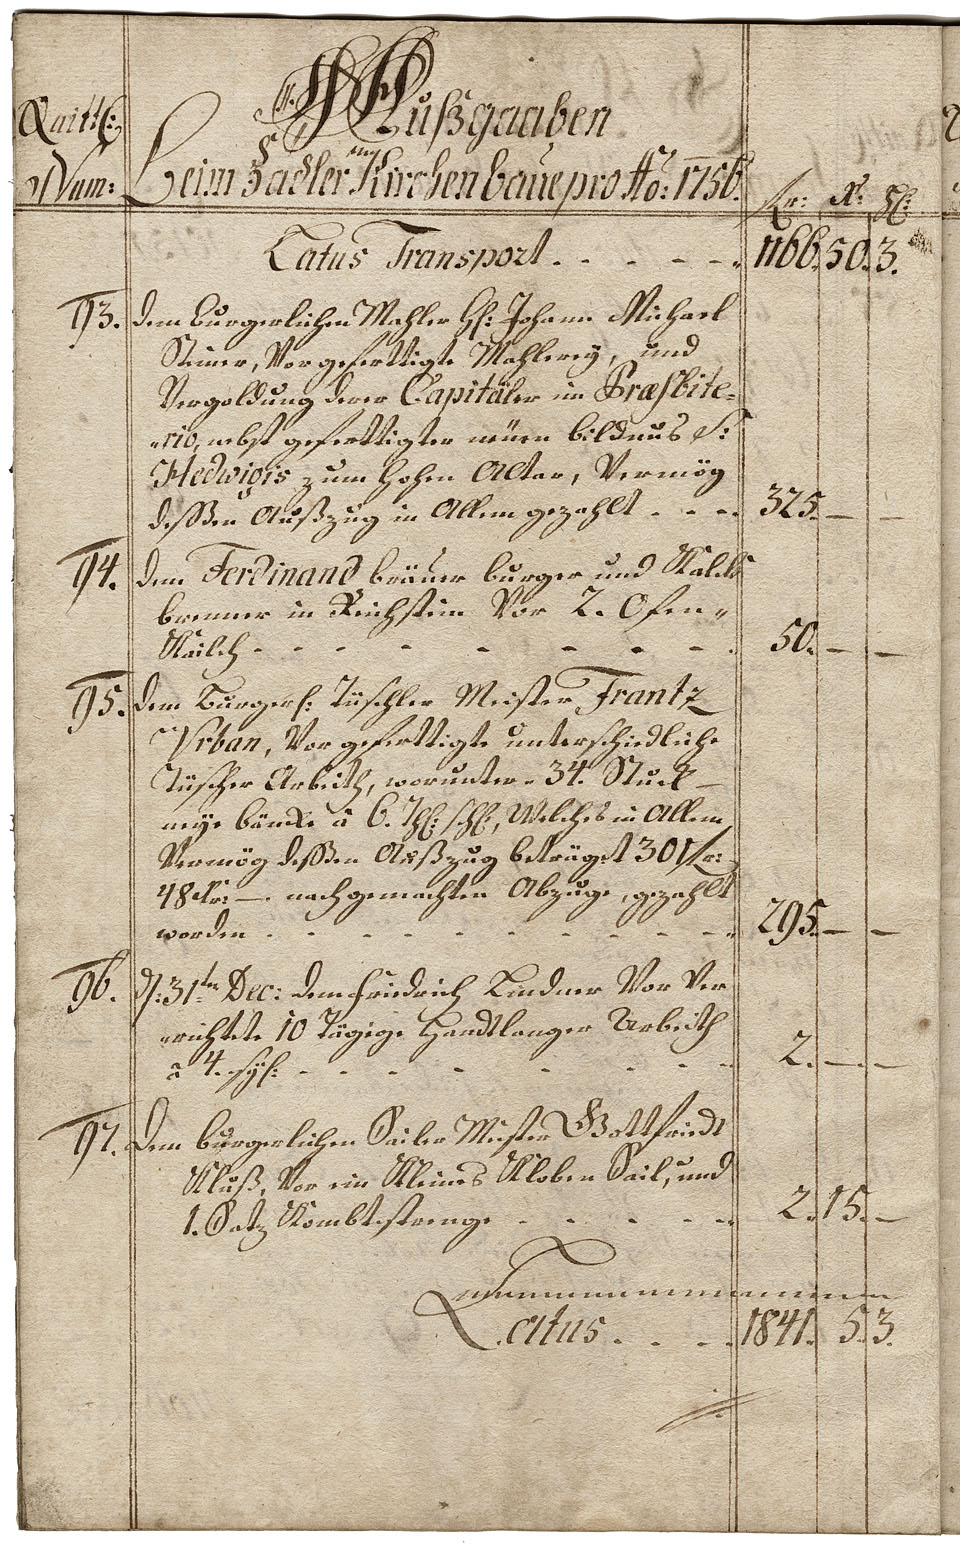 Quitt:
Num:
Außgaaben
Beim Zadler Kirchenbaue pro Ao: 1756.
fr: Xr: hl:
Latus Transport . . . . . 1166. 50. 3.
193. dem burgerlichen Mahler H: Johann Michael
Steiner, Vor gefertigte Mahlerey, und
Vergoldung derer Capitäler im Præsbite-
rio, nebst gefertigter neuen bildnus S:
Hedwigis zum hohen Altar, Vermög
deßen Außzug in Allem gezahlt . . . 325. — —
194. dem Ferdinand bräuer burger und Kalch
brenner in Reichstein Vor 2. Ofen
Kalch . . . . . . . . 50. — —
195. dem Burgerl: Tischler Meister Frantz
Urban, Vor gefertigte unterschiedliche
Tischer Arbeith, worunter 34. Stuck
neye bäncke à 6. Thl: schl:, Welches in Allem
Vermög deßen Außzug beträget 301 fr:
48 Xr: — nach gemachten Abzuge, gezahlt
worden . . . . . . . . . 295. — —
196. d: 31ten Dec: dem Friedrich Lindner Vor Ver
richtete 10 Tägige Handtlanger Arbeith
à 4. sgl: . . . . . . . 2. — —
197. Dem burgerlichen Sailer Meister Gottfriedt
Kluß, Vor ein Kleines Kloben Sail, und
1. Satz Kombtstrenge . . . . . 2. 15. —
Latus . . . . 1841. 5. 3.